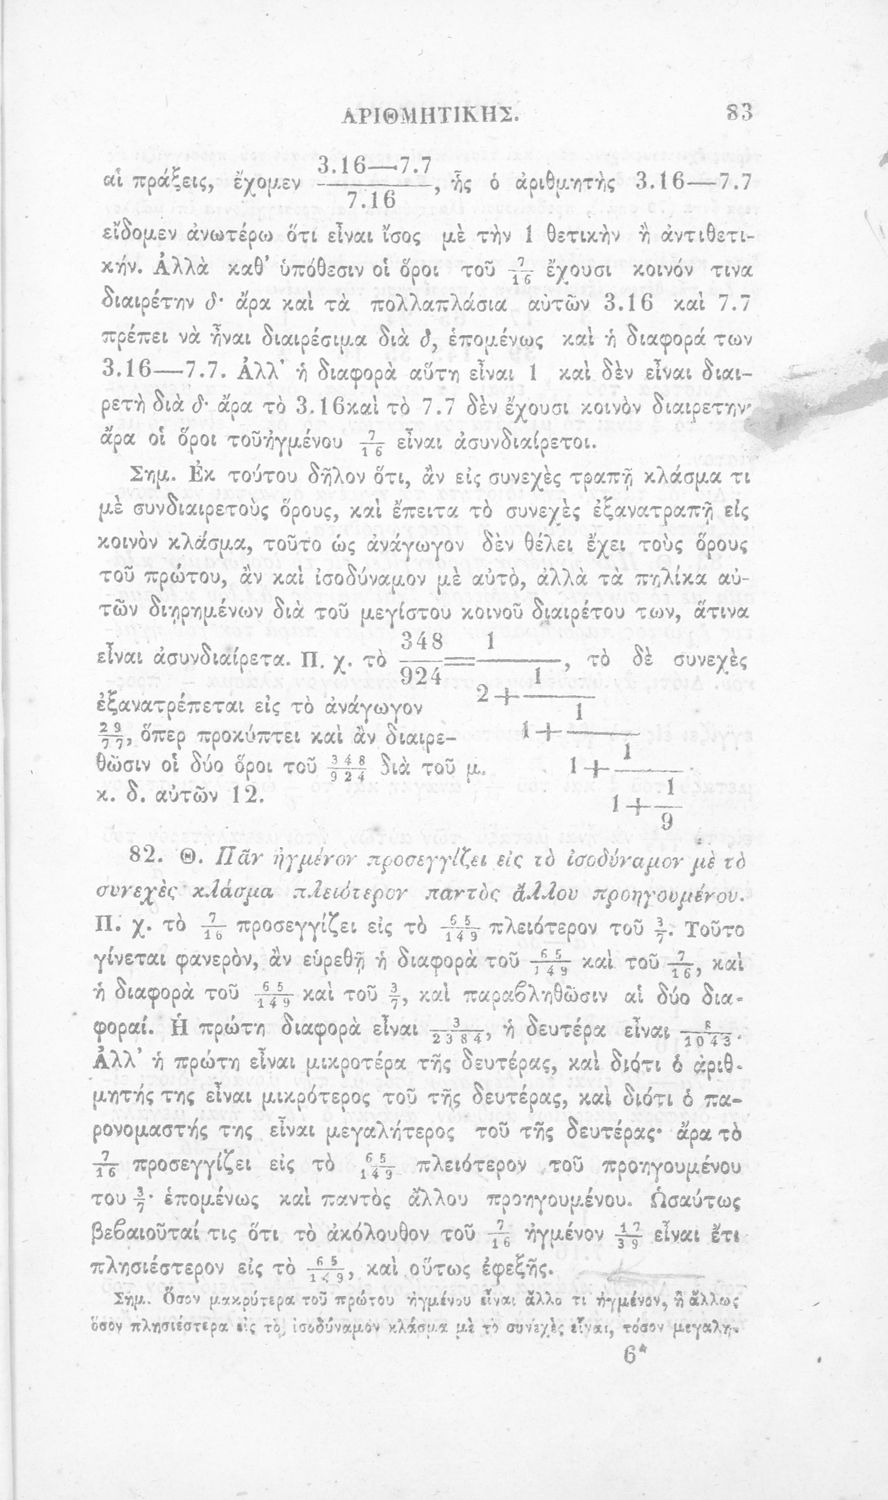 ΑΡΙΘΜΗΤΙΚΗΣ. 83
αἱ πράξεις, ἔχομεν (3.16—7.7)/(7.16), ἧς ὁ ἀριθμητὴς 3.16—7.7
εἴδομεν ἀνωτέρω ὅτι εἶναι ἴσος μὲ τὴν 1 θετικὴν ἢ ἀντιθετι-
κήν. Ἀλλὰ καθ’ ὑπόθεσιν οἱ ὅροι τοῦ 7/16 ἔχουσι κοινόν τινα
διαιρέτην δ· ἄρα καὶ τὰ πολλαπλάσια αὐτῶν 3.16 καὶ 7.7
πρέπει νὰ ἦναι διαιρέσιμα διὰ δ, ἑπομένως καὶ ἡ διαφορά των
3.16—7.7. Ἀλλ’ ἡ διαφορὰ αὕτη εἶναι 1 καὶ δὲν εἶναι διαι-
ρετὴ διὰ δ· ἄρα τὸ 3.16 καὶ τὸ 7.7 δὲν ἔχουσι κοινὸν διαιρετην·
ἄρα οἱ ὅροι τοῦ ἠγμένου 7/16 εἶναι ἀσυνδιαίρετοι.
Σημ. Ἐκ τούτου δῆλον ὅτι, ἂν εἰς συνεχὲς τραπῇ κλάσμα τι
μὲ συνδιαιρετοὺς ὅρους, καὶ ἔπειτα τὸ συνεχὲς ἐξανατραπῇ εἰς
κοινὸν κλάσμα, τοῦτο ὡς ἀνάγωγον δὲν θέλει ἔχει τοὺς ὅρους
τοῦ πρώτου, ἂν καὶ ἰσοδύναμον μὲ αὐτὸ, ἀλλὰ τὰ πηλίκα αὐ-
τῶν διῃρημένων διὰ τοῦ μεγίστου κοινοῦ διαιρέτου των, ἅτινα
εἶναι ἀσυνδιαίρετα. Π. χ. τὸ 348/924 = 1/(2+1/(1+1/(1+1/(1+1/9)))), τὸ δὲ συνεχὲς
ἐξανατρέπεται εἰς τὸ ἀνάγωγον
29/77, ὅπερ προκύπτει καὶ ἂν διαιρε-
θῶσιν οἱ δύο ὅροι τοῦ 348/924 διὰ τοῦ μ.
κ. δ. αὐτῶν 12.
82. Θ. Πᾶν ἠγμένον προσεγγίζει εἰς τὸ ἰσοδύναμον μὲ τὸ
συνεχὲς κλάσμα πλειότερον παντὸς ἄλλου προηγουμένου.
Π. χ. τὸ 7/16 προσεγγίζει εἰς τὸ 65/149 πλειότερον τοῦ 3/7. Τοῦτο
γίνεται φανερὸν, ἂν εὑρεθῇ ἡ διαφορὰ τοῦ 65/149 καὶ τοῦ 7/16, καὶ
ἡ διαφορὰ τοῦ 65/149 καὶ τοῦ 3/7, καὶ παραβληθῶσιν αἱ δύο δια-
φοραί. Ἡ πρώτη διαφορὰ εἶναι 3/2384, ἡ δευτέρα εἶναι 8/1043.
Ἀλλ’ ἡ πρώτη εἶναι μικροτέρα τῆς δευτέρας, καὶ διότι ὁ ἀριθ-
μητής της εἶναι μικρότερος τοῦ τῆς δευτέρας, καὶ διότι ὁ πα-
ρονομαστής της εἶναι μεγαλήτερος τοῦ τῆς δευτέρας· ἄρα τὸ
7/16 προσεγγίζει εἰς τὸ 65/149 πλειότερον τοῦ προηγουμένου
του 3/7· ἑπομένως καὶ παντὸς ἄλλου προηγουμένου. Ὡσαύτως
βεβαιοῦταί τις ὅτι τὸ ἀκόλουθον τοῦ 7/16 ἠγμένον 17/39 εἶναι ἔτι
πλησιέστερον εἰς τὸ 65/149, καὶ οὕτως ἐφεξῆς.
Σημ. Ὅσον μακρύτερα τοῦ πρώτου ἠγμένου εἶναι ἄλλο τι ἠγμένον, ἢ ἄλλως
ὅσον πλησιέστερα εἰς τὸ ἰσοδύναμον κλάσμα μὲ τὸ συνεχὲς εἶναι, τόσον μεγαλη-
6*